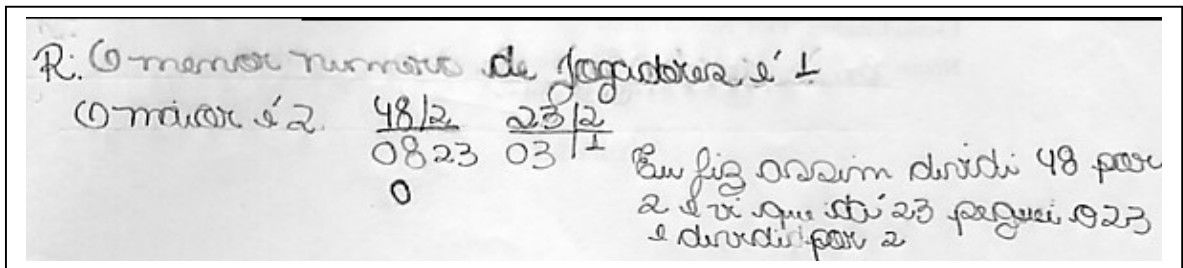 R: O menor numero de jogadores é 1
O maior é 2. 48|2 23|2
0823 03|1
0
Eu fiz assim dividi 48 por
2 e vi que dá 23 peguei o 23
e dividi por 2